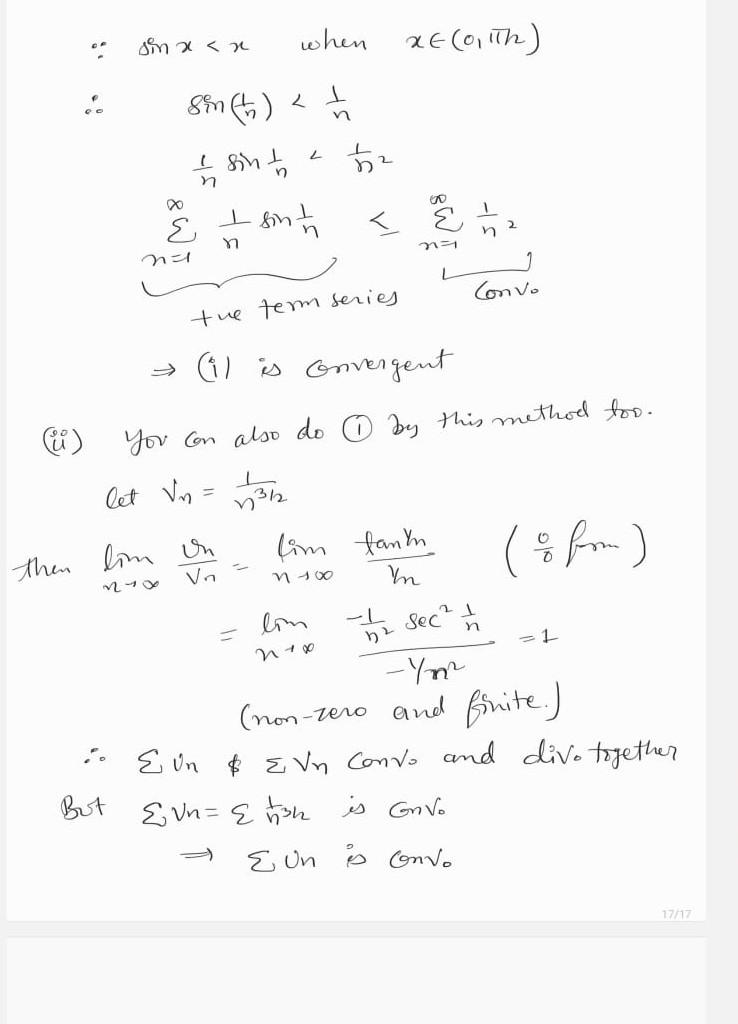 ∵ sin x < x when x ∈ (0, π/2)
∴ sin(1/n) < 1/n
1/n sin 1/n < 1/n²
∞ Σ n=1 1/n sin 1/n ≤ ∞ Σ n=1 1/n²
+ve term series Conv.
⇒ (i) is convergent
(ii) You can also do ① by this method too.
let Vn = 1/n^3/2
then lim n→∞ Un/Vn = lim n→∞ tan 1/n / 1/n (0/0 form)
= lim n→∞ -1/n² sec² 1/n / -1/n² = 1
(non-zero and finite.)
∴ Σ Un & Σ Vn Conv. and div. together
But Σ Vn = Σ 1/n^3/2 is Conv.
⇒ Σ Un is Conv.
17/17